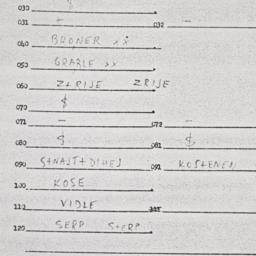 030 $
031 + 032 -
040 BRONER xx
050 GRABLE xx
060 Z+RIJE ZRIJE
070 $
071 - 072 -
080 $ 081 $
090 S+NAJT+DIHEJ 091 KOS+ENEN
100 KOSE
110 VIDLE
120 SERP S+ERP